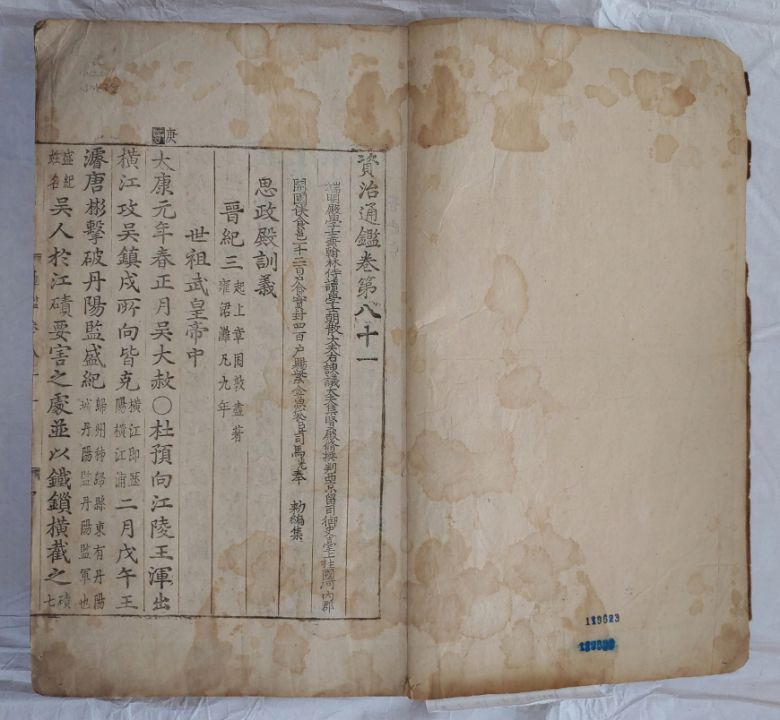 資治通鑑卷第八十一
端明殿學士兼翰林侍讀學士朝散大夫右諫議大夫集賢殿修撰判西京留司御史臺上柱國河內郡
開國侯食邑一千三百戶食實封四百戶賜紫金魚袋臣司馬光奉 勑編集
思政殿訓義
晉紀三 起上章困敦盡著雍涒灘凡九年
世祖武皇帝中
庚子
大康元年春正月吳大赦○杜預向江陵王渾出
橫江攻吳鎮戍所向皆克 橫江即歷陽橫江浦 二月戊午王
濬唐彬擊破丹陽監盛紀 歸州秭歸縣東有丹陽城丹陽監丹陽監軍也
盛紀姓名 吳人於江磧要害之處並以鐵鎖橫截之 磧七
129623